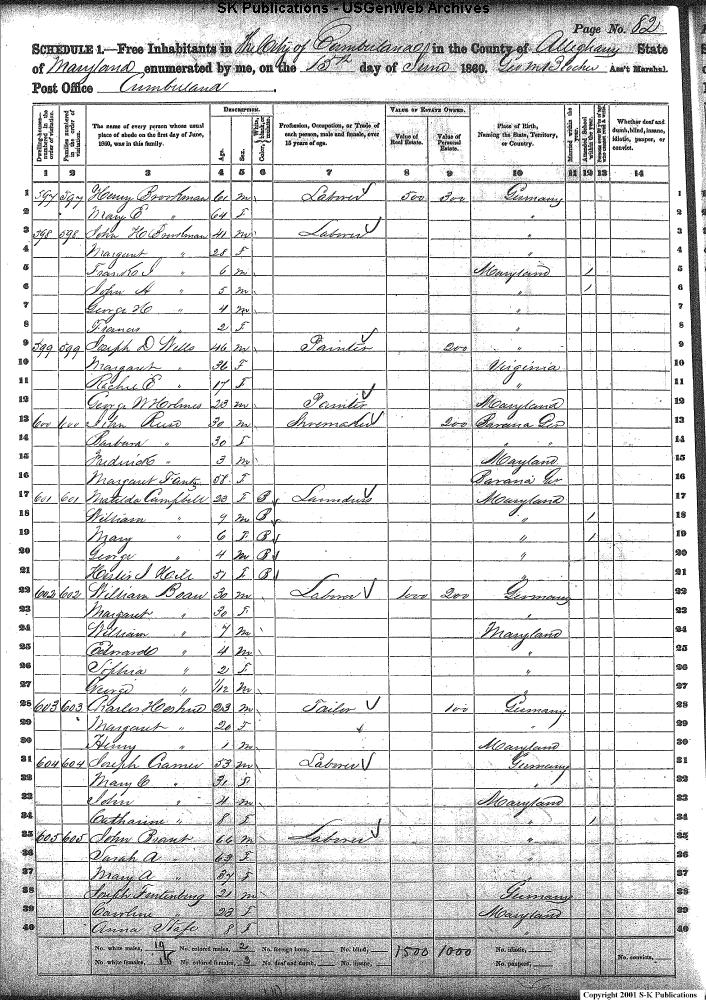 SK Publications - USGenWeb Archives
Page No. 82
SCHEDULE 1.—Free Inhabitants in The City of Cumberland in the County of Alleghany State
of Maryland enumerated by me, on the 15th day of June 1860. Ass't Marshal.
Post Office Cumberland
Dwelling-houses— numbered in the order of visitation.
Families numbered in the order of visitation.
The name of every person whose usual place of abode on the first day of June, 1860, was in this family.
DESCRIPTION.
Age.
Sex.
Color, White, black, or mulatto.
Profession, Occupation, or Trade of each person, male and female, over 15 years of age.
VALUE OF ESTATE OWNED.
Value of Real Estate.
Value of Personal Estate.
Place of Birth, Naming the State, Territory, or Country.
Married within the year.
Attended School within the year.
Whether deaf and dumb, blind, insane, idiotic, pauper, or convict.
1 2 3 4 5 6 7 8 9 10 11 12 13 14
1 597 597 Henry Brookman 61 m Laborer 500 300 Germany 1
2 Mary E " 64 F " 2
3 598 598 John H Brookman 41 m Laborer " 3
4 Margaret " 28 F " 4
5 Frank I " 6 m Maryland 1 5
6 John H " 5 m " 1 6
7 George H " 4 m " 7
8 Francis " 2 F " 8
9 599 599 Joseph D Wells 46 m Painter 200 " 9
10 Margaret " 36 F Virginia 10
11 Richie E " 17 F " 11
12 George W Holmes 23 m Painter Maryland 12
13 600 600 John Russ 30 m Shoemaker 200 Bavaria Ger 13
14 Barbara " 30 F " " 14
15 Fredrick " 3 m Mayland 15
16 Margaret 58 F Bavaria Ger 16
17 601 601 Matilda Campbell 23 F B Laundress Maryland 17
18 William " 9 m B " 1 18
19 Mary " 6 F B " 1 19
20 George " 4 m B " 20
21 51 F B " 21
22 602 602 William Boan 30 m Laborer 1000 200 Germany 22
23 Margaret " 30 F " 23
24 William " 7 m Maryland 24
25 Edward " 4 m " 25
26 Sophia " 2 F " 26
27 George " 1/12 m " 27
28 603 603 Charles 23 m Tailor 100 Germany 28
29 Margaret " 20 F " 29
30 Henry " 1 m Maryland 30
31 604 604 Joseph Cramer 53 m Laborer Germany 31
32 Mary C " 31 F " 32
33 John " 4 m Maryland 33
34 Catharine " 8 F " 1 34
35 605 605 John Brant 66 m Laborer " 35
36 Sarah A " 63 F " 36
37 Mary A " 37 F " 37
38 Joseph 21 m Germany 38
39 Caroline 23 F Maryland 39
40 Anna 8 F " 40
No. white males, 19 No. colored males, 2 No. foreign born, No. blind, 1500 1000 No. idiotic, No. convicts,
No. white females, No. colored females, 3 No. deaf and dumb, No. insane, No. paupers,
Copyright 2001 S-K Publications